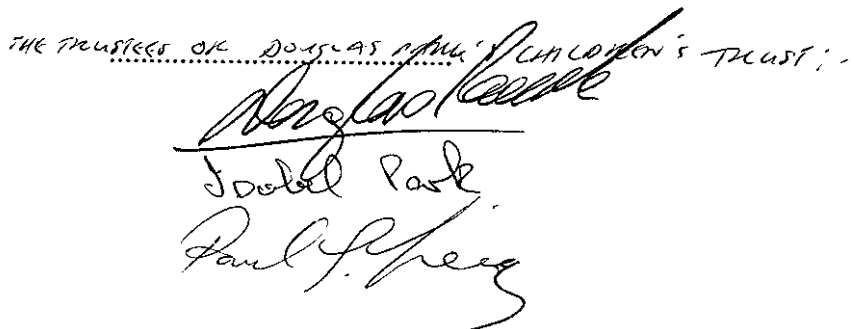 THE TRUSTEES OF DOUGLAS PARK'S CHILDREN'S TRUST :-
Douglas Park
Isobel Park
Paul